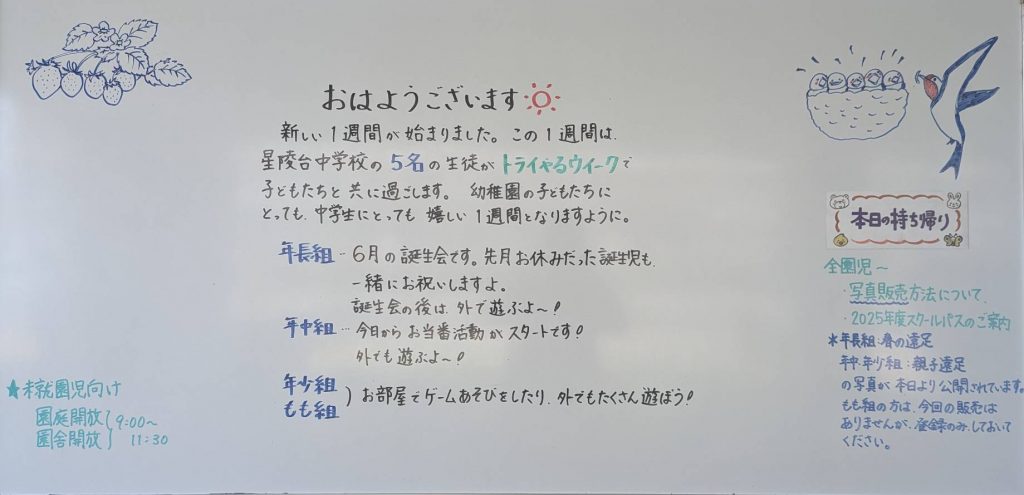 おはようございます
新しい1週間が始まりました。この1週間は、
星陵台中学校の5名の生徒がトライやるウィークで
子どもたちと共に過ごします。幼稚園の子どもたちに
とっても、中学生にとっても嬉しい1週間となりますように。
年長組…6月の誕生会です。先月お休みだった誕生児も、
一緒にお祝いしますよ。
誕生会の後は、外で遊ぶよ〜!
年中組…今日からお当番活動がスタートです!
外でも遊ぶよ〜!
年少組
もも組 ) お部屋でゲームあそびをしたり、外でもたくさん遊ぼう!
★未就園児向け
園庭開放
園舎開放 ( 9:00〜
11:30
本日の持ち帰り
全園児〜
・写真販売方法について
・2025年度スクールパスのご案内
*年長組:春の遠足
年中、年少組:親子遠足
の写真が本日より公開されています。
もも組の方は、今回の販売は
ありませんが、登録のみ、しておいて
ください。